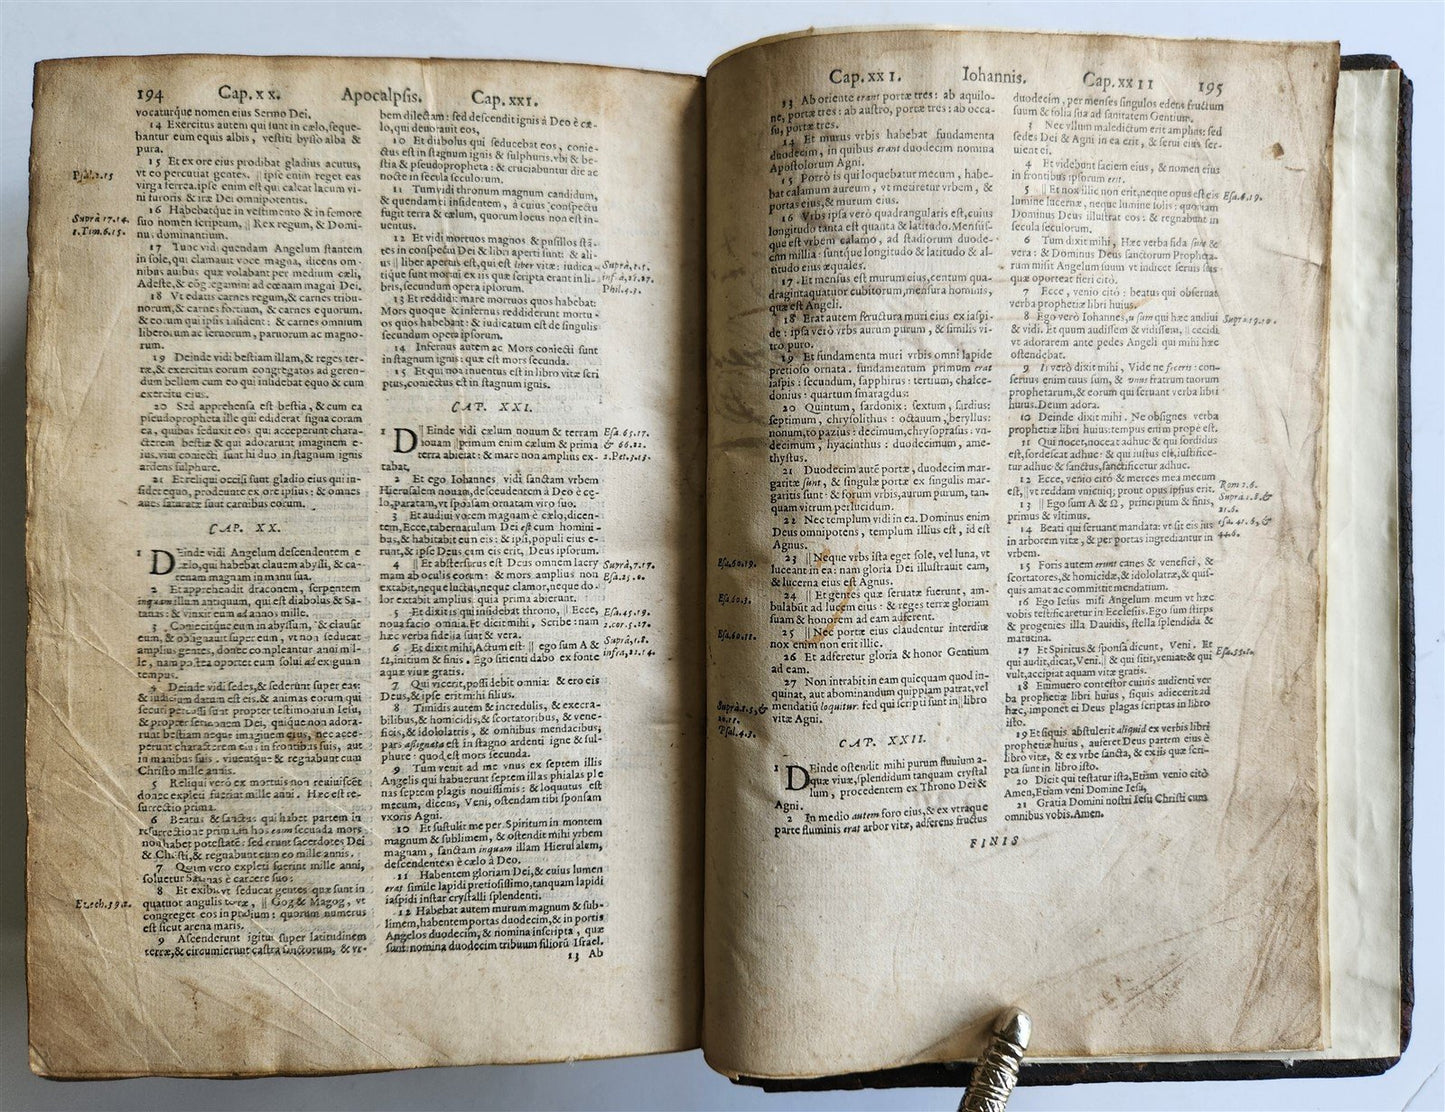 194 Cap. xx. Apocalpsis. Cap. xxi.
vocaturque nomen eius Sermo Dei.
14 Exercitus autem qui sunt in cælo, seque-
bantur eum equis albis, vestiti bysso alba &
pura.
15 Et ex ore eius prodibat gladius acutus,
vt eo percutiat gentes. || ipse enim reget eas
virga ferrea. ipse enim est qui calcat lacum vi-
ni furoris & iræ Dei omnipotentis.
16 Habebatque in vestimento & in femore
suo nomen scriptum, || Rex regum, & Domi-
nus dominantium.
17 Tunc vidi quendam Angelum stantem
in sole, qui clamauit voce magna, dicens om-
nibus auibus quæ volabant per medium cæli,
Adeste, & congregamini ad cœnam magni Dei.
18 Vt edatis carnes regum, & carnes tribu-
norum, & carnes fortium, & carnes equorum,
& eorum qui ipsis insident: & carnes omnium
liberorum ac seruorum, paruorum ac magno-
rum.
19 Deinde vidi bestiam illam, & reges ter-
ræ, & exercitus eorum congregatos ad geren-
dum bellum cum eo qui insidebat equo & cum
exercitu eius.
20 Sed apprehensa est bestia, & cum ea
pseudopropheta ille qui ediderat signa coram
ea, quibus seduxit eos qui acceperunt chara-
cterem bestiæ & qui adorarunt imaginem e-
ius. viui coniecti sunt hi duo in stagnum ignis
ardens sulphure.
21 Et reliqui occisi sunt gladio eius qui in-
sidet equo, prodeunte ex ore ipsius: & omnes
aues saturatæ sunt carnibus eorum.
CAP. XX.
1 DEinde vidi Angelum descendentem e
cælo, qui habebat clauem abyssi, & ca-
tenam magnam in manu sua.
2 Et apprehendit draconem, serpentem
inquam illum antiquum, qui est diabolus & Sa-
tanas: & vinxit eum ad annos mille.
3 Coniecitque eum in abyssum, & clausit
eum, & obsignauit super eum, vt non seducat
amplius gentes, donec compleantur anni mil-
le, nam postea oportet eum solui ad exiguum
tempus.
4 Deinde vidi sedes, & sederunt super eas:
& iudicium datum est eis. & animas eorum qui
securi percussi sunt propter testimonium Iesu,
& propter sermonem Dei, quique non adora-
runt bestiam neque imaginem eius, nec acce-
perunt characterem eius in frontibus suis, aut
in manibus suis. viuentque & regnabunt cum
Christo mille annis.
5 Reliqui verò ex mortuis non reuiuiscēt
donec expleti fuerint mille anni. Hæc est re-
surrectio prima.
6 Beatus & sanctus qui habet partem in
resurrectione prima. in hos enim secunda mors
non habet potestatē: sed erunt sacerdotes Dei
& Christi, & regnabunt cum eo mille annis.
7 Quum vero expleti fuerint mille anni,
soluetur Satanas è carcere suo:
8 Et exibit vt seducat gentes quæ sunt in
quatuor angulis terræ, || Gog & Magog, vt
congreget eos in prælium: quorum numerus
est sicut arena maris.
9 Ascenderunt igitur super latitudinem
terræ, & circumierunt castra sanctorum, & vr-
Psal. 2.15
Suprà 17.14.
1. Tim. 6.15.
Ezech. 39.2.
bem dilectam: sed descendit ignis à Deo è cæ-
lo, qui deuorauit eos,
10 Et diabolus qui seducebat eos, conie-
ctus est in stagnum ignis & sulphuris. vbi & be-
stia & pseudopropheta: & cruciabuntur die ac
nocte in secula seculorum.
11 Tum vidi thronum magnum candidum,
& quendam ei insidentem, à cuius conspectu
fugit terra & cælum, quorum locus non est in-
uentus.
12 Et vidi mortuos magnos & pusillos stā-
tes in conspectu Dei & libri aperti sunt: & ali-
us || liber apertus est, qui est liber vitæ: iudica-
tique sunt mortui ex iis quæ scripta erant in li-
bris, secundum opera ipsorum.
13 Et reddidit mare mortuos quos habebat:
Mors quoque & infernus reddiderunt mortu-
os quos habebant: & iudicatum est de singulis
secundum opera ipsorum.
14 Infernus autem ac Mors coniecti sunt
in stagnum ignis: quæ est mors secunda.
15 Et qui non inuentus est in libro vitæ scri
ptus, coniectus est in stagnum ignis.
CAP. XXI.
1 D||Einde vidi cælum nouum & terram
nouam || primum enim cælum & prima
terra abierat: & mare non amplius ex-
tabat,
2 Et ego Iohannes vidi sanctam vrbem
Hierusalem nouam, descendentem à Deo è cę-
lo, paratam, vt sponsam ornatam viro suo.
3 Et audiui vocem magnam è cælo, dicen-
tem, Ecce, tabernaculum Dei est cum homini-
bus, & habitabit cum eis: & ipsi, populi eius e-
runt, & ipse Deus cum eis erit, Deus ipsorum.
4 || Et abstersurus est Deus omnem lacry
mam ab oculis eorum: & mors amplius non
extabit, neque luctus, neque clamor, neque do-
lor extabit amplius. quia prima abierunt.
5 Et dixit is qui insidebat throno, || Ecce,
noua facio omnia. Et dicit mihi, Scribe: nam
hæc verba fidelia sunt & vera.
6 Et dixit mihi, Actum est: || ego sum A &
Ω, initium & finis. Ego sitienti dabo ex fonte
aquæ viuæ gratis.
7 Qui vicerit, possidebit omnia: & ero eis
Deus, & ipse erit mihi filius.
8 Timidis autem & incredulis, & execra-
bilibus, & homicidis, & scortatoribus, & vene-
ficis, & idololatris, & omnibus mendacibus,
pars assignata est in stagno ardenti igne & sul-
phure: quod est mors secunda.
9 Tum venit ad me vnus ex septem illis
Angelis qui habuerunt septem illas phialas ple
nas septem plagis nouissimis: & loquutus est
mecum, dicens, Veni, ostendam tibi sponsam
vxoris Agni.
10 Et sustulit me per Spiritum in montem
magnum & sublimem, & ostendit mihi vrbem
magnam, sanctam inquam illam Hierusalem,
descendentem è cælo à Deo.
11 Habentem gloriam Dei, & cuius lumen
erat simile lapidi pretiosissimo, tanquam lapidi
iaspidi instar crystalli splendenti.
12 Habebat autem murum magnum & sub-
limem, habentem portas duodecim, & in portis
Angelos duodecim, & nomina inscripta, quæ
sunt nomina duodecim tribuum filiorū Israel.
13 Ab
Suprà, 3.5.
infrà, 21.27.
Phil. 4.3.
Esa. 65.17.
& 66.22.
2. Pet. 3.13.
Suprà, 7.17.
Esa. 25.8.
Esa. 45.19.
2. cor. 5.17.
Suprà, 1.8.
infra, 22.14.
Cap. xxi. Iohannis. Cap. xxii 195
13 Ab oriente erant portæ tres: ab aquilo-
ne, portæ tres: ab austro, portæ tres: ab occa-
su, portæ tres.
14 Et murus vrbis habebat fundamenta
duodecim, in quibus erant duodecim nomina
Apostolorum Agni.
15 Porrò is qui loquebatur mecum, habe-
bat calamum aureum, vt metiretur vrbem, &
portas eius, & murum eius.
16 Vrbs ipsa verò quadrangularis est, cuius
longitudo tanta est quanta & latitudo. Mensus-
que est vrbem calamo, ad stadiorum duode-
cim millia: suntque longitudo & latitudo & al-
titudo eius æquales.
17 Et mensus est murum eius, centum qua-
dragintaquatuor cubitorum, mensura hominis,
quæ est Angeli.
18 Erat autem structura muri eius ex iaspi-
de: ipsa verò vrbs aurum purum, & similis vi-
tro puro.
19 Et fundamenta muri vrbis omni lapide
pretioso ornata. fundamentum primum erat
iaspis: secundum, sapphirus: tertium, chalce-
donius: quartum smaragdus:
20 Quintum, sardonix: sextum, sardius:
septimum, chrysolithus: octauum, beryllus:
nonum, topazius: decimum, chrysoprasus: vn-
decimum, hyacinthus: duodecimum, ame-
thystus.
21 Duodecim autē portæ, duodecim mar-
garitæ sunt, & singulæ portæ ex singulis mar-
garitis sunt: & forum vrbis, aurum purum, tan-
quam vitrum perlucidum.
22 Nec templum vidi in ea. Dominus enim
Deus omnipotens, templum illius est, id est
Agnus.
23 || Neque vrbs ista eget sole, vel luna, vt
luceant in ea: nam gloria Dei illustrauit eam,
& lucerna eius est Agnus.
24 || Et gentes quæ seruatæ fuerint, am-
bulabūt ad lucem eius: & reges terræ gloriam
suam & honorem ad eam adferent.
25 || Nec portæ eius claudentur interdiu
nox enim non erit illic.
26 Et adferetur gloria & honor Gentium
ad eam.
27 Non intrabit in eam quicquam quod in-
quinat, aut abominandum quippiam patrat, vel
mendatiū loquitur: sed qui scripti sunt in || libro
vitæ Agni.
CAP. XXII.
1 DEinde ostendit mihi purum fluuium a-
quæ viuæ, splendidum tanquam crystal
lum, procedentem ex Throno Dei &
Agni.
2 In medio autem foro eius, & ex vtraque
parte fluminis erat arbor vitæ, adferens fructus
Esa. 60.19.
Esa. 60.3.
Esa. 60.11.
Suprà. 3.5, &
20.12.
Psal. 4.3.
duodecim, per menses singulos edens fructum
suum & folia sua ad sanitatem Gentium.
3 Nec vllum maledictum erit amplius: sed
sedes Dei & Agni in ea erit, & serui eius ser-
uient ei.
4 Et videbunt faciem eius, & nomen eius
in frontibus ipsorum erit.
5 || Et nox illic non erit, neque opus est eis
lumine lucernæ, neque lumine solis: quoniam
Dominus Deus illustrat eos: & regnabunt in
secula seculorum.
6 Tum dixit mihi, Hæc verba fida sunt &
vera: & Dominus Deus sanctorum Propheta-
rum misit Angelum suum vt indicet seruis suis
quæ oporteat fieri citò.
7 Ecce, venio citò: beatus qui obseruat
verba prophetiæ libri huius.
8 Ego verò Iohannes, is sum qui hæc audiui
& vidi. Et quum audissem & vidissem, || cecidi
vt adorarem ante pedes Angeli qui mihi hæc
ostendebat.
9 Is verò dixit mihi, Vide ne feceris: con-
seruus enim tuus sum, & vnus fratrum tuorum
prophetarum, & eorum qui seruant verba libri
huius. Deum adora.
10 Deinde dixit mihi. Ne obsignes verba
prophetiæ libri huius: tempus enim propè est.
11 Qui nocet, noceat adhuc & qui sordidus
est, sordescat adhuc: & qui iustus est, iustifice-
tur adhuc & sanctus, sanctificetur adhuc.
12 Ecce, venio citò & merces mea mecum
est, || vt reddam vnicuiq; prout opus ipsius erit.
13 || Ego sum A & Ω, principium & finis,
primus & vltimus.
14 Beati qui seruant mandata: vt sit eis ius
in arborem vitæ, & per portas ingrediantur in
vrbem.
15 Foris autem erunt canes & venefici, &
scortatores, & homicidæ, & idololatræ, & quis-
quis amat ac committit mendatium.
16 Ego Iesus misi Angelum meum vt hæc
vobis testificaretur in Ecclesiis. Ego sum stirps
& progenies illa Dauidis, stella splendida &
matutina.
17 Et Spiritus & sponsa dicunt, Veni. Et
qui audit, dicat, Veni. || & qui sitit, veniat: & qui
vult, accipiat aquam vitæ gratis.
18 Enimuero contestor cuiuis audienti ver
ba prophetiæ libri huius, siquis adiecerit ad
hæc, imponet ei Deus plagas scriptas in libro
isto.
19 Et siquis abstulerit aliquid ex verbis libri
prophetiæ huius, auferet Deus partem eius è
libro vitæ, & ex vrbe sancta, & ex iis quæ scri-
pta sunt in libro isto.
20 Dicit qui testatur ista, Etiam venio citò
Amen, Etiam veni Domine Iesu,
21 Gratia Domini nostri Iesu Christi cum
omnibus vobis. Amen.
Esa. 6.19.
Supra. 19.10.
Rom 2.6.
Supra 1.8. &
21.6.
esa. 41.6, &
44.6.
FINIS